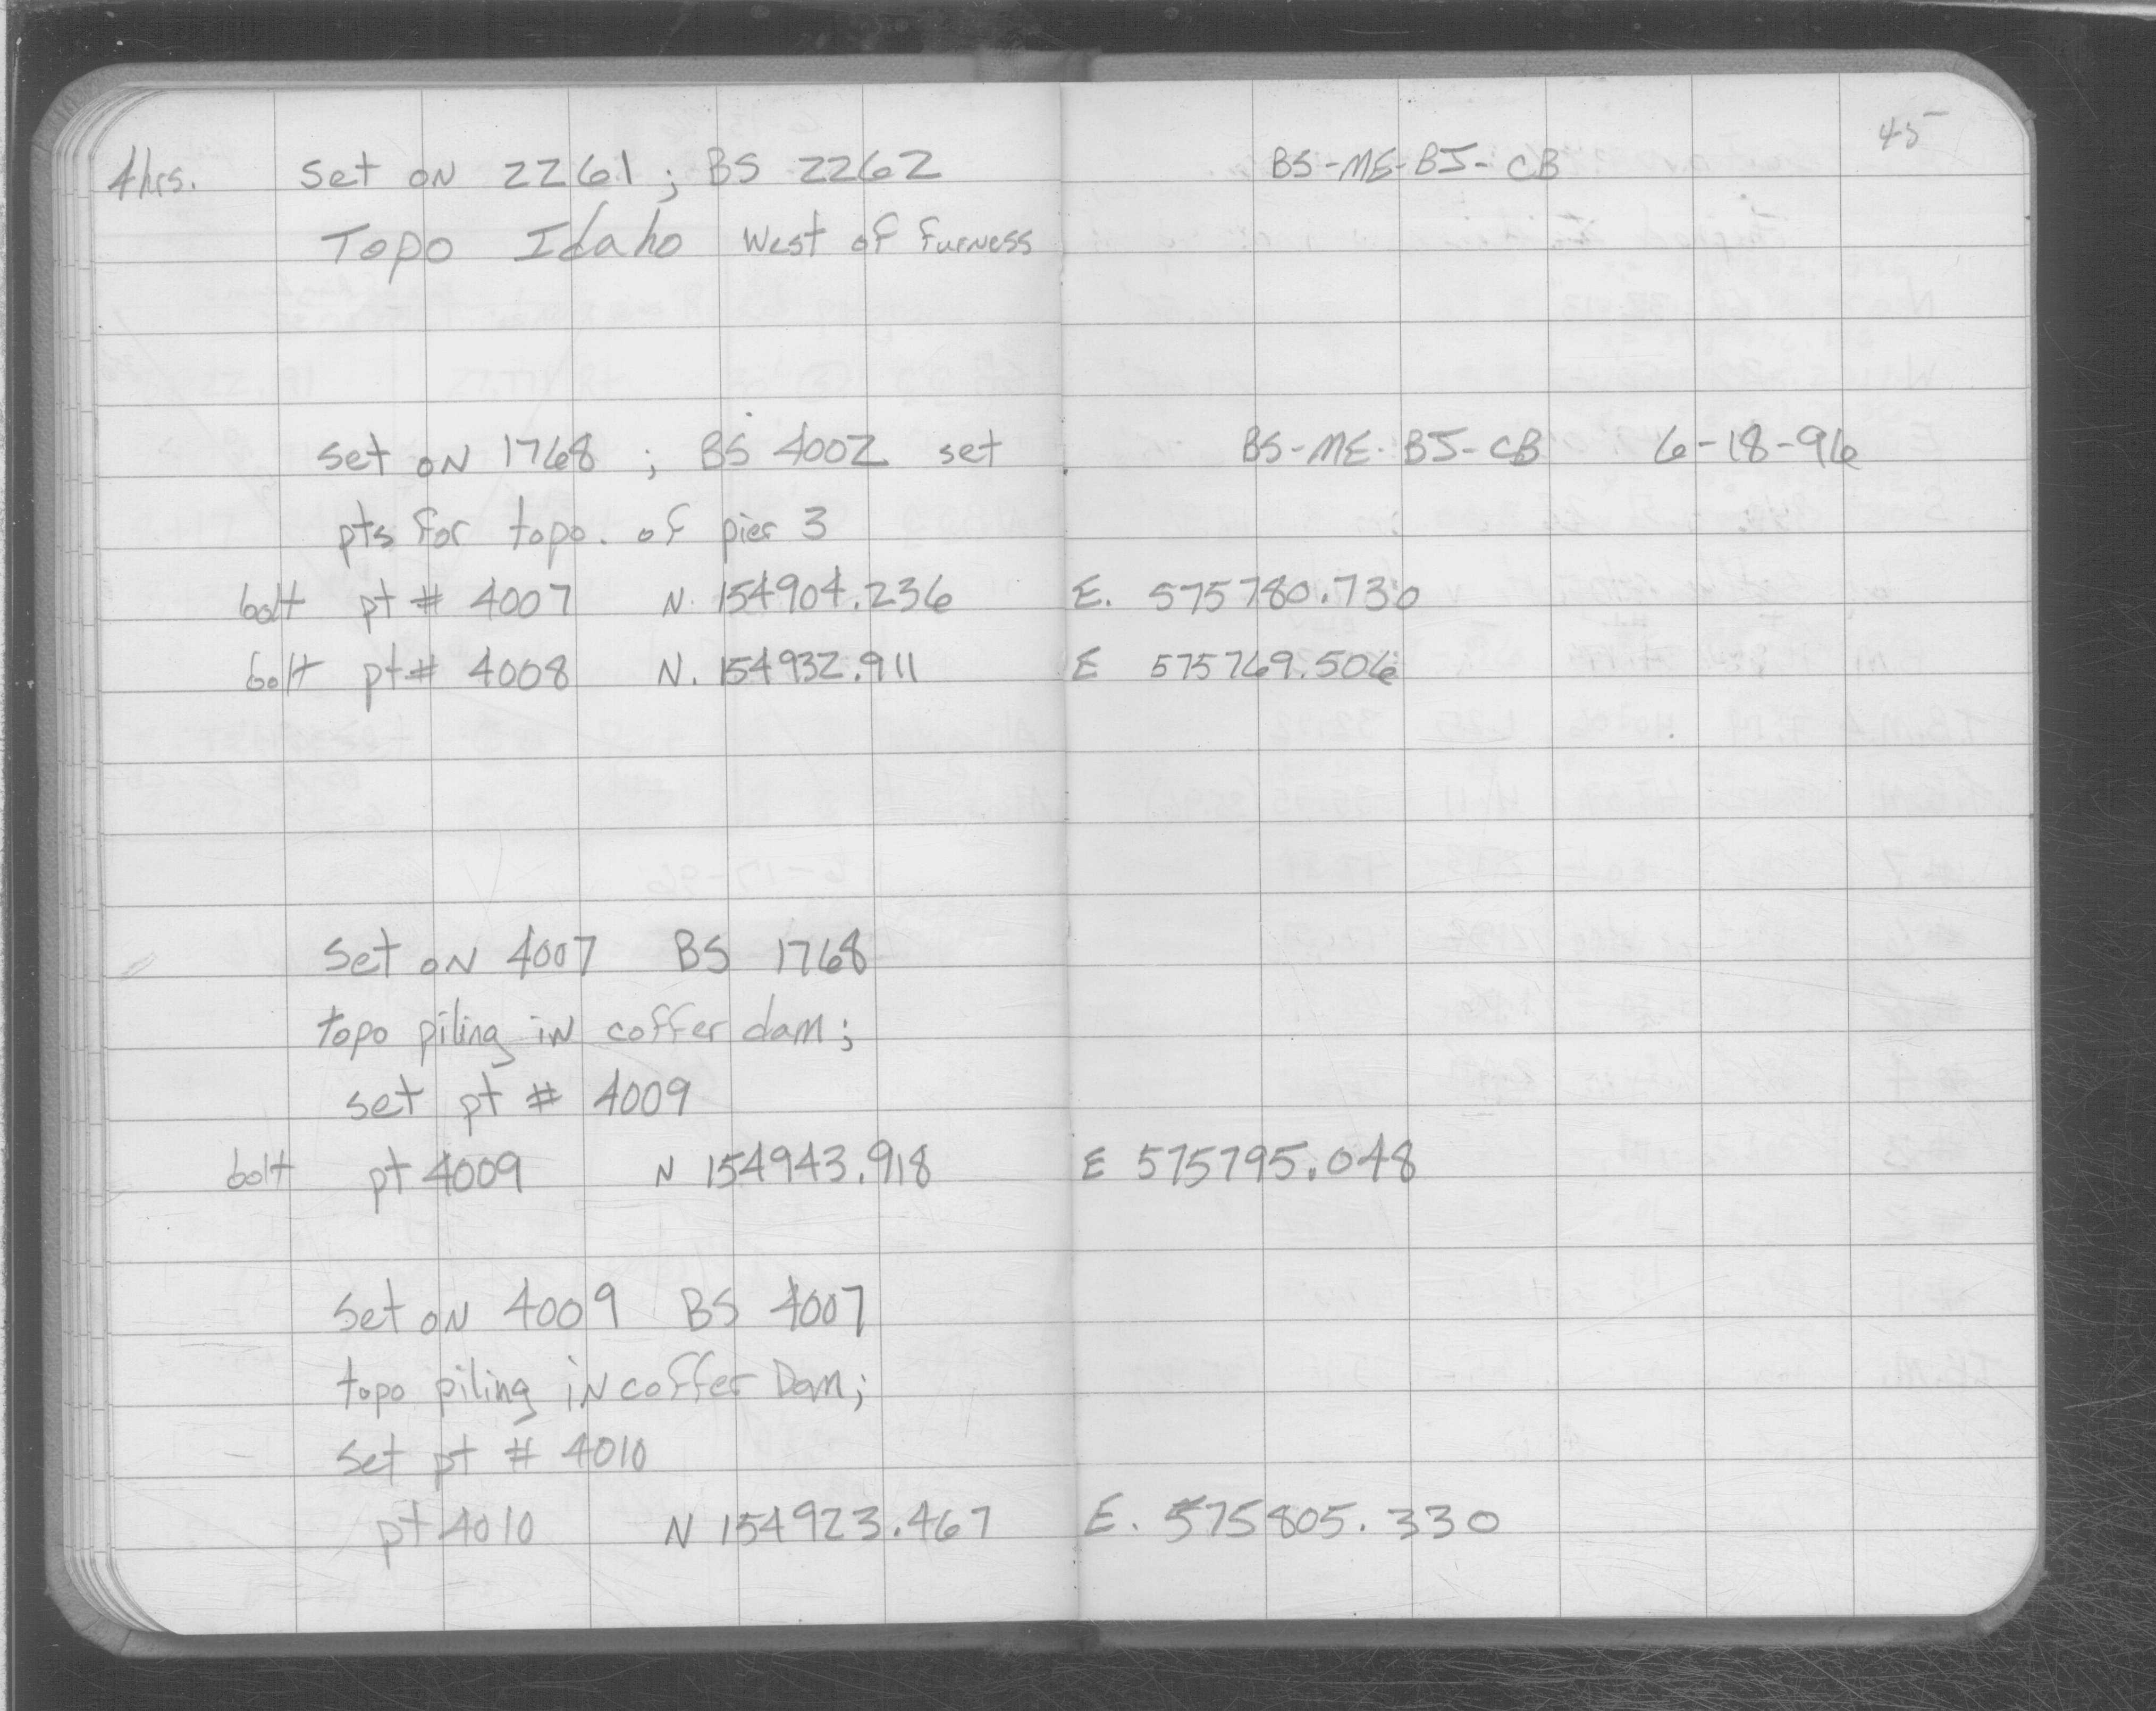 45
4hrs. Set on 2261; BS 2262 BS-ME-BJ-CB
Topo Idaho West of Furness
set on 1768; BS 4002 set BS-ME-BJ-CB 6-18-96
pts for topo. of pier 3
bolt pt # 4007 N. 154904.236 E. 575780.730
bolt pt # 4008 N. 154932.911 E 575769.506
Set on 4007 BS 1768
topo piling in coffer dam;
set pt # 4009
bolt pt 4009 N 154943.918 E 575795.048
Set on 4009 BS 4007
topo piling in coffer Dam;
Set pt # 4010
pt 4010 N 154923.467 E. 575805.330